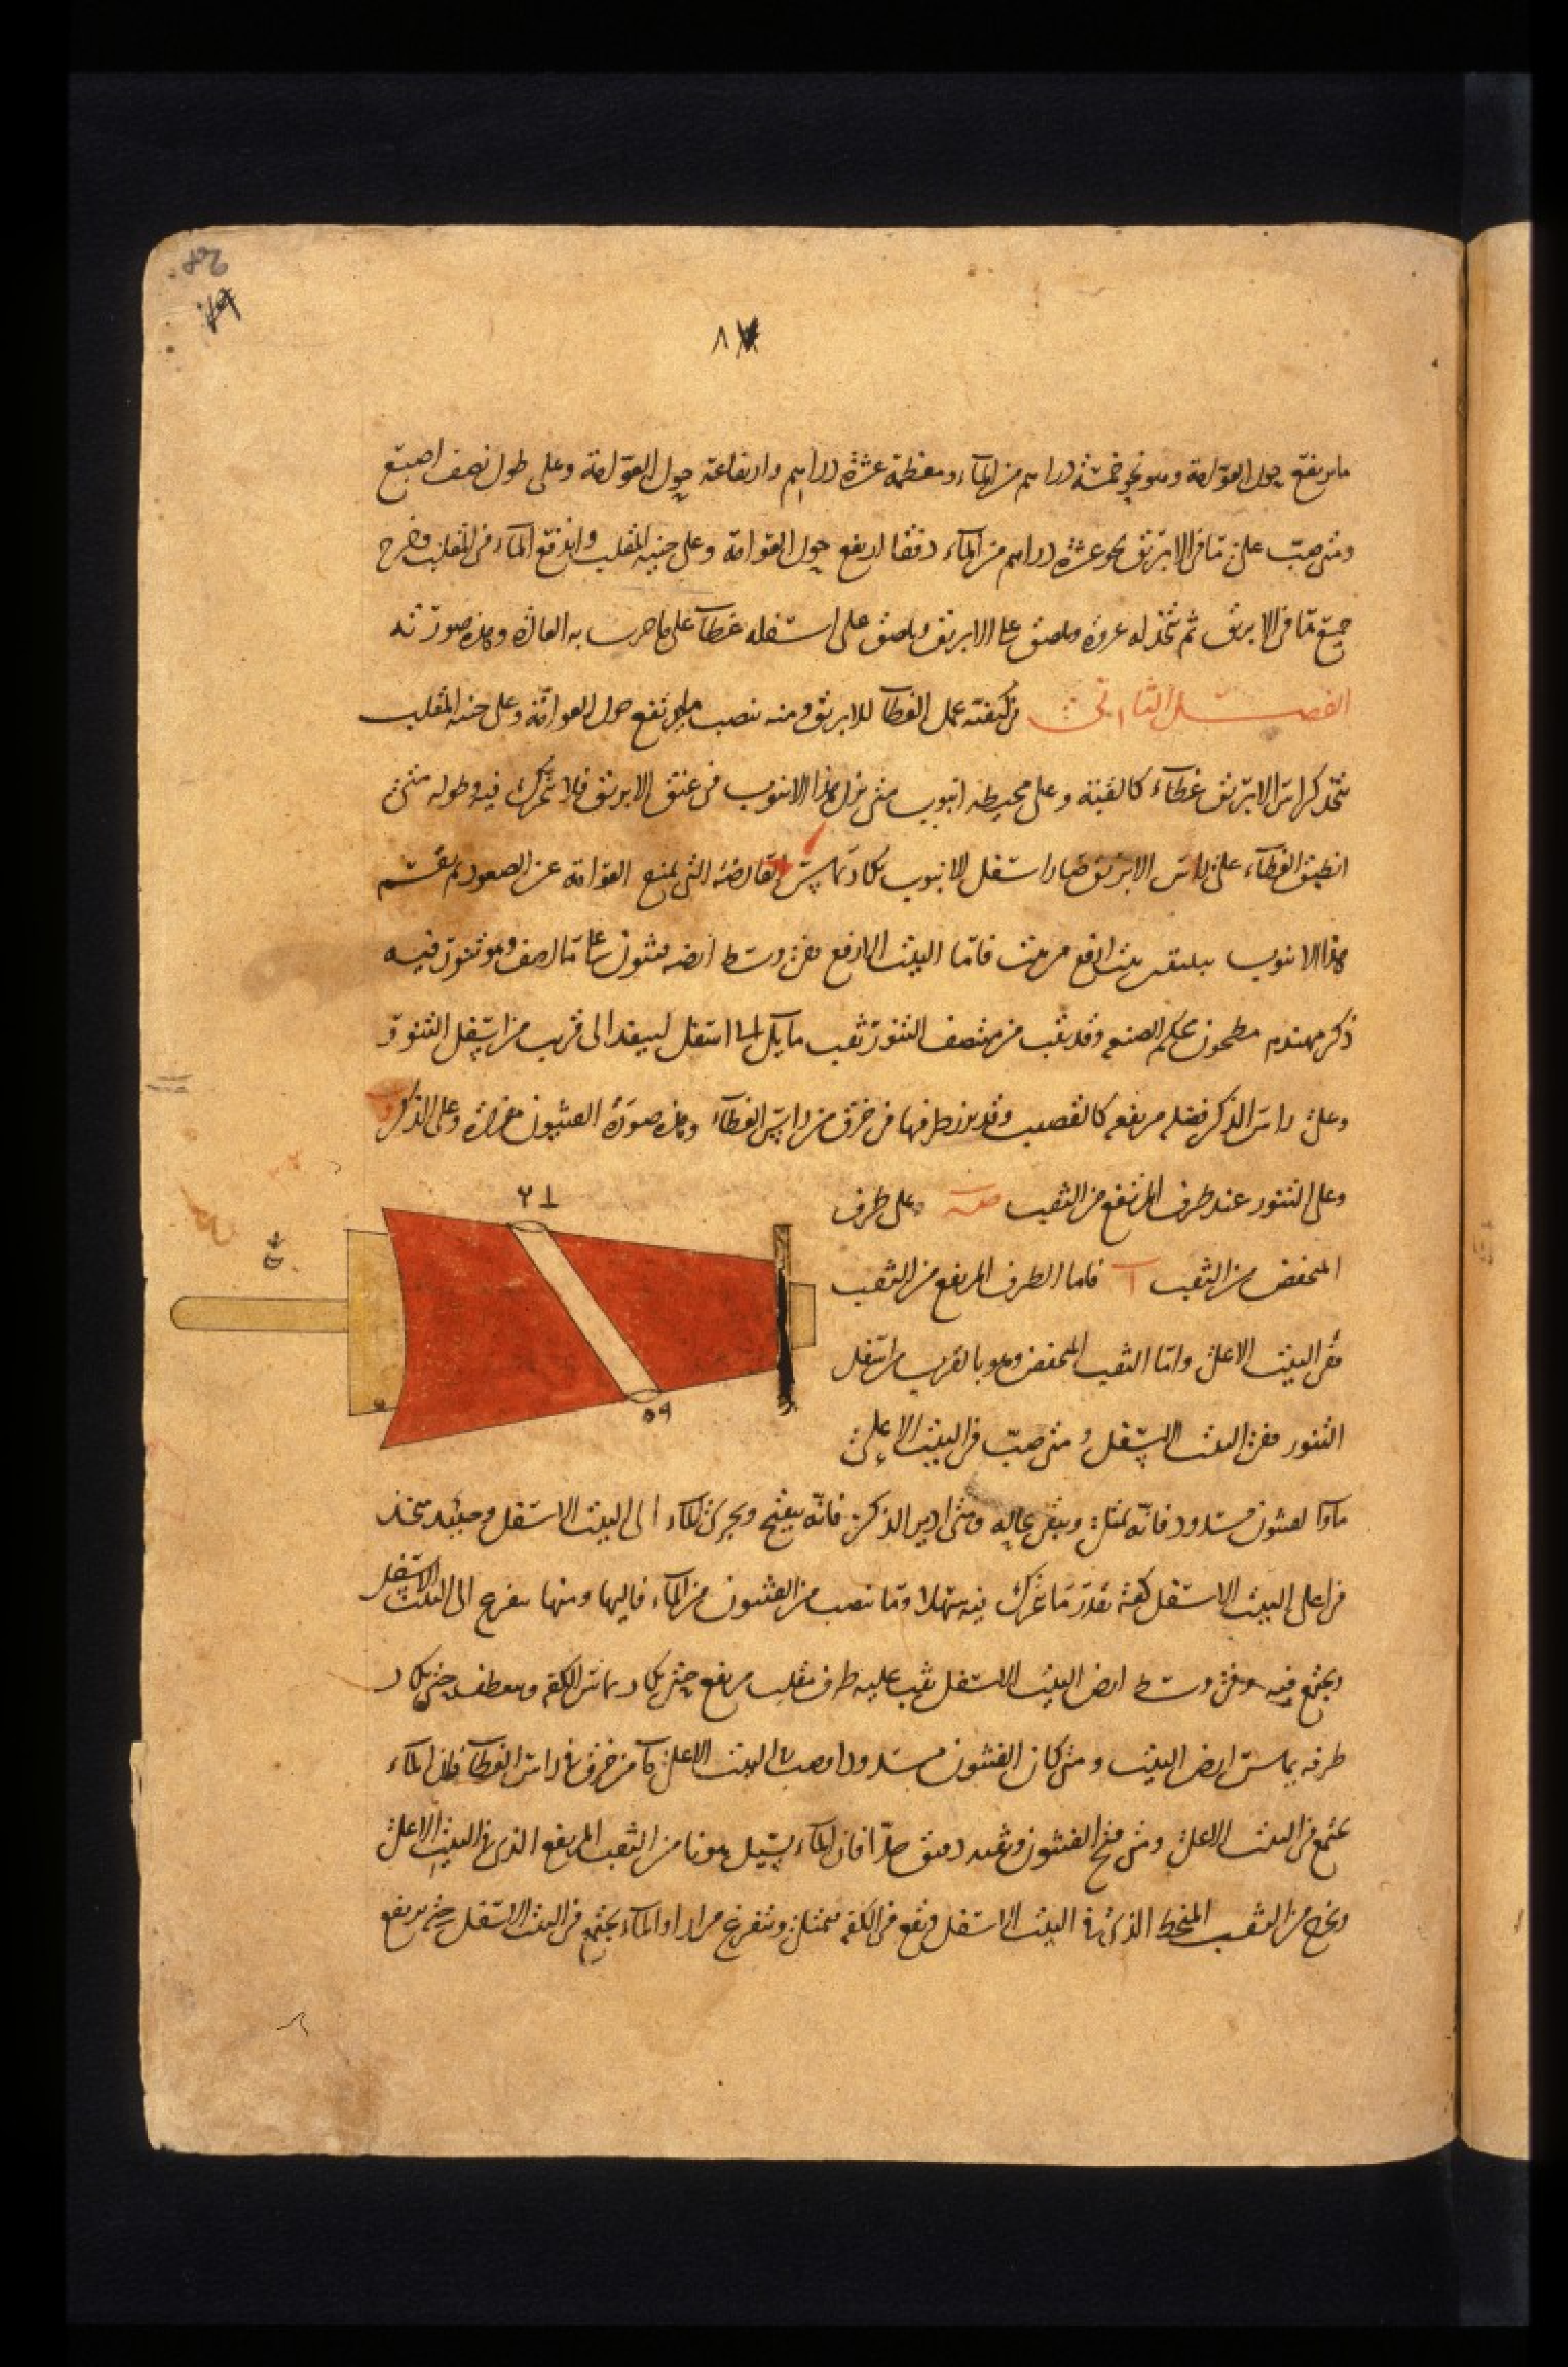 ٨٧
ما يرتفع حول العوامة وهو نحو خمسة دراهم من الماء ومعظمه عشرة دراهم وارتفاعه حول العوامة وعلى طول نصف اصبع
ومتى صب على ما في الابريق نحو عشرة دراهم من الماء دفقا ارتفع حول العوامة وعلى جنبيه المقلب واندفع الماء من المقلب وخرج
جميع ما في الابريق ثم يتخذ له عروة ويلصق على الابريق ويلصق على اسفله غطآ على ما جرت به العادة وهذه صورته
الفصل الثاني في كيفية عمل الغطآ للابريق ومنه ينصب ما يرتفع حول العوامة وعلى جنبيه المقلب
يتخذ لراس الابريق غطآء كالقبة وعلى محيطه انبوب متى نزل هذا الانبوب في عنق الابريق فلا يتحرك فيه وطوله متى
انطبق الغطآء على راس الابريق صار اسفل الانبوب يكاد يماس العارضة التي تمنع العوامة عن الصعود ثم يقسم
هذا الانبوب بيتين بيت ارفع من بيت فاما البيت الارفع ففي وسط ارضه فثيون على ما اصف وهو تنور فيه
ذكر مهندم مطحون محكم الصنعة وقد ثقب من منتصف التنور ثقب مايل الى اسفل لينفذ الى قريب من اسفل التنور
وعلى راس الذكر فضلة مرتفعة كالقصيب وقد برز طرفها من خرق من راس الغطآء وهذه صورة الفثيون مفردة وعلى الذكر
وعلى التنور عند طرف المرتفع من الثقب وعلى طرف
المنخفض من الثقب فاما الطرف المرتفع من الثقب
ففي البيت الاعلى واما الثقب المنخفض وهو بالقرب من اسفل
التنور ففي البيت الاسفل ومتى صب في البيت الاعلى
مآ والفثيون مسدود فانه يمتلئ ويبقى بحاله ومتى ادير الذكر فانه ينفتح ويجري المآء الى البيت الاسفل وحينئذ يتخذ
في اعلى البيت الاسفل كفة بقدر ما تتحرك فيه سهلا وما ينصب من الفثيون من المآء فاليها ومنها يتفرغ الى البيت الاسفل
ويجتمع فيه وفي وسط ارض البيت الاسفل ثقب عليه طرف مقلب مرتفع حتى يكاد يماس الكفة وينعطف حتى يكاد
طرفه يماس ارض البيت ومتى كان الفثيون مسدودا وصب في البيت الاعلى مآ من خرق في راس الغطآ فان المآء
يجتمع في البيت الاعلى ومتى فتح الفثيون وثقبه دقيق جدا فان المآء يسيل هونا من الثقب المرتفع الذي في البيت الاعلى
ويخرج من الثقب المنحط الذي في البيت الاسفل ويقع في الكفة فتمتلئ وتتفرغ مرارا والمآء يجتمع في البيت الاسفل حتى يرتفع